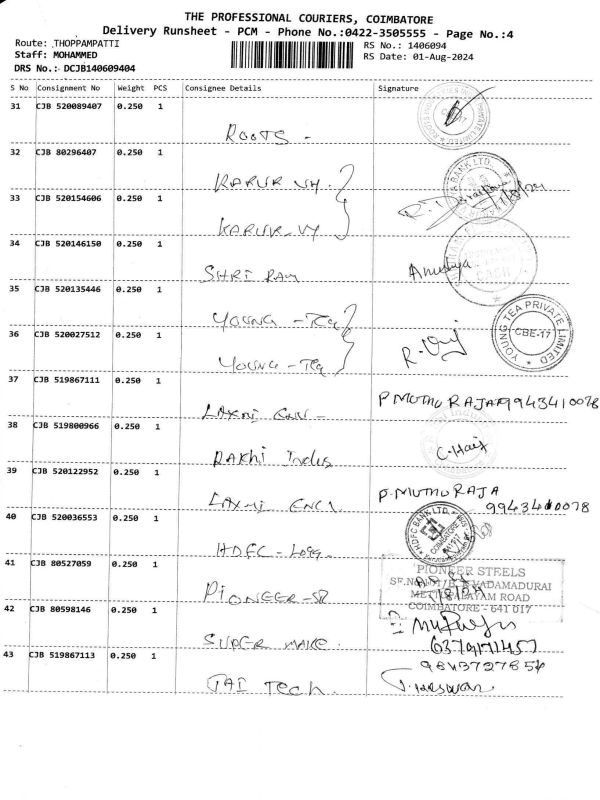 THE PROFESSIONAL COURIERS, COIMBATORE
Delivery Runsheet - PCM - Phone No.:0422-3505555 - Page No.:4
Route: THOPPAMPATTI
RS No.: 1406094
Staff: MOHAMMED
RS Date: 01-Aug-2024
DRS No.: DCJB140609404
S No Consignment No Weight PCS Consignee Details Signature
31 CJB 520089407 0.250 1
ROOTS -
32 CJB 80296407 0.250 1
KARUR VY
33 CJB 520154606 0.250 1
KARUR - VY
34 CJB 520146150 0.250 1
SHRI RAM Anushya
35 CJB 520135446 0.250 1
YOUNG - Tea
YOUNG TEA PRIVATE LIMITED
CBE-17
36 CJB 520027512 0.250 1
YOUNG - Tea
37 CJB 519867111 0.250 1
P MUTHU RAJA 9943410078
LAXMI ENG -
38 CJB 519800966 0.250 1
RAKHI Indus
39 CJB 520122952 0.250 1
P. MUTHU RAJA
LAXMI ENG 9943410078
40 CJB 520036553 0.250 1
HDFC BANK LTD.
HDFC -
41 CJB 80527059 0.250 1
PIONEER STEELS
VADAMADURAI
PIONEER -
METTUPALAYAM ROAD
COIMBATORE - 641 017
42 CJB 80598146 0.250 1
SUPER
43 CJB 519867113 0.250 1
JAI Tech.